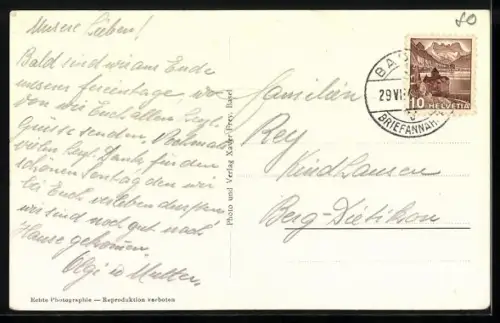 Unsere Lieben!
Bald sind wir am Ende
unserer Ferientage, wo
von wir Euch allen herzl.
Grüsse senden. Nochmals
vielen herzl. Dank für den
schönen Sonntag den wir
bei Euch verleben durften,
wir sind noch gut nach
Hause gekommen.
Olgi u Mutter.
Echte Photographie — Reproduktion verboten
Photo und Verlag Xaver Frey, Basel
Familien
Frey
Kindhausen
Berg-Dietikon
29 VI
BRIEFANNAH
10 HELVETIA
80